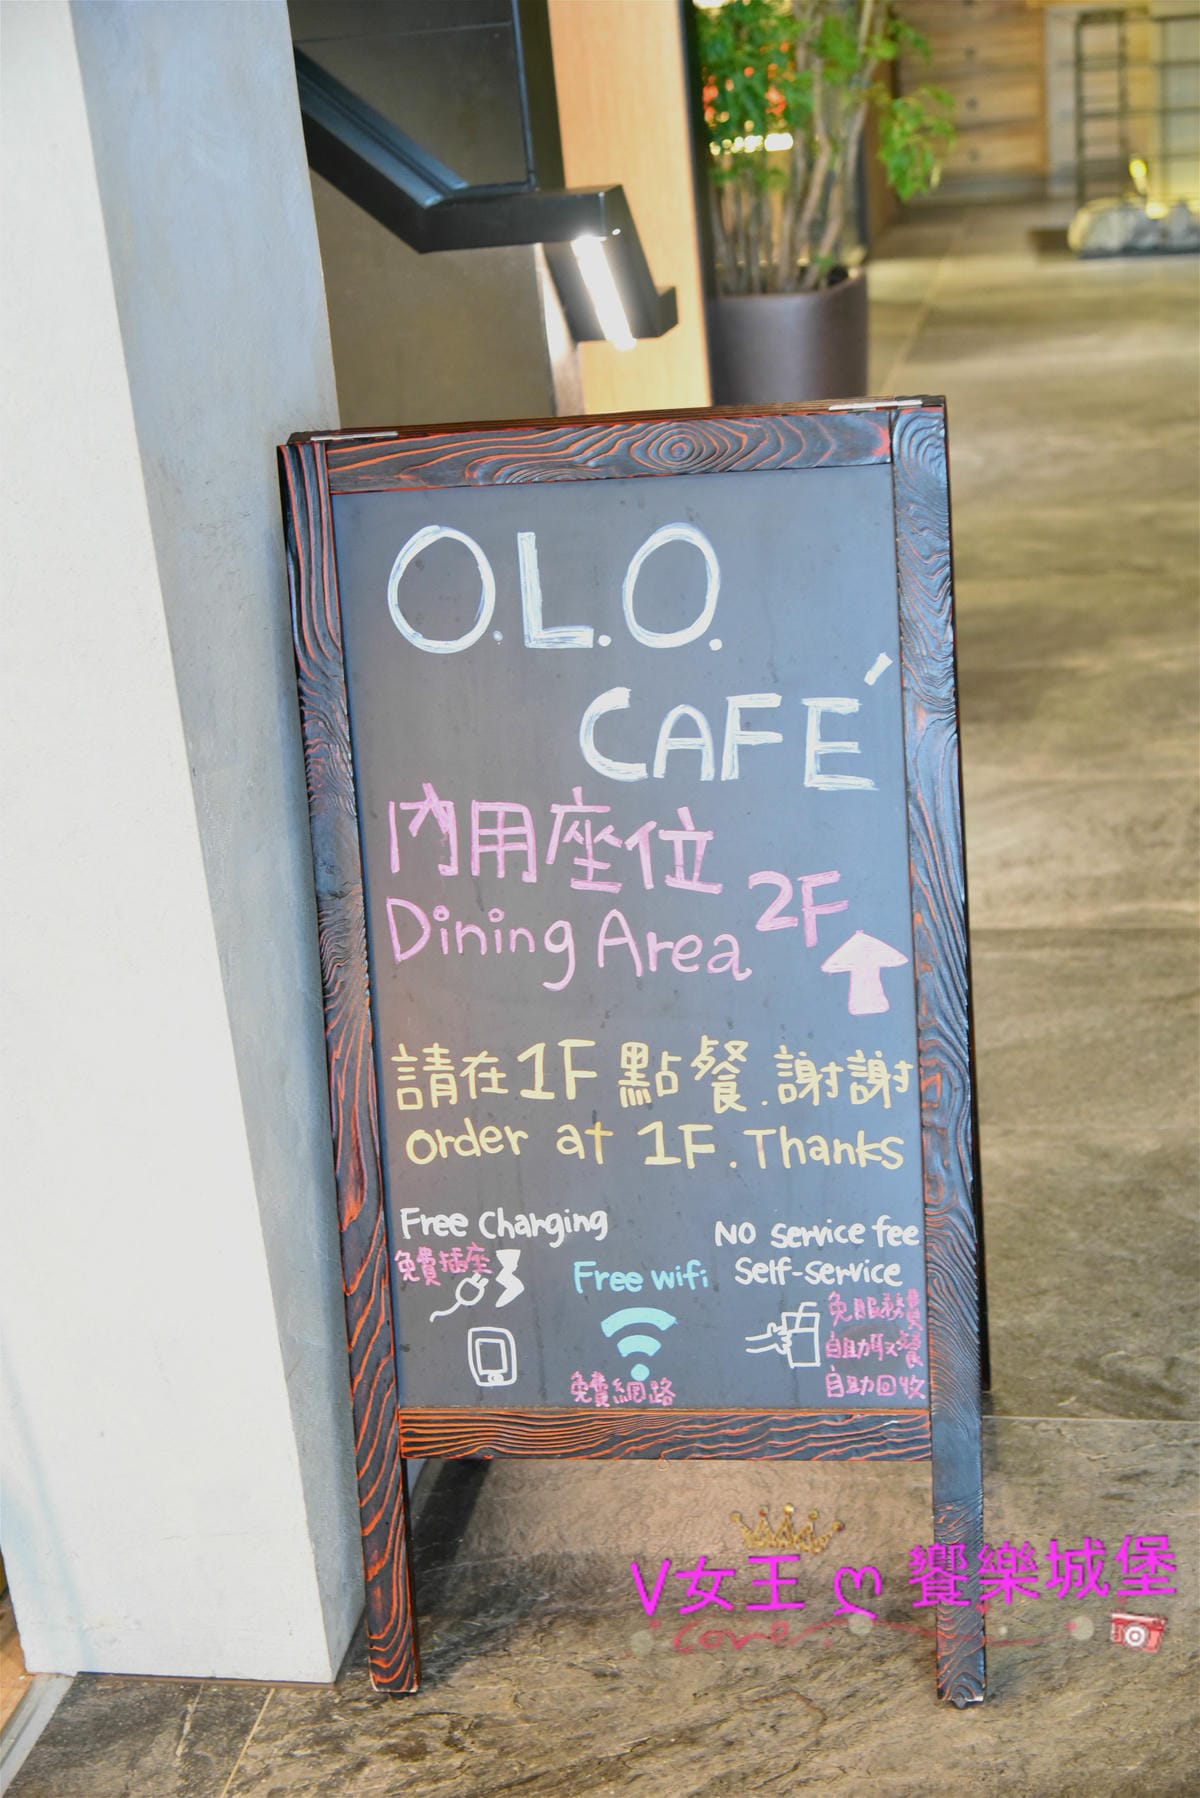 O.L.O.
CAFÉ
內用座位
Dining Area 2F
請在1F點餐.謝謝
order at 1F. Thanks
Free Charging
免費插座
Free wifi
免費網路
NO Service fee
Self-Service
免服務費
自助取餐
自助回收
V女王ღ饗樂城堡